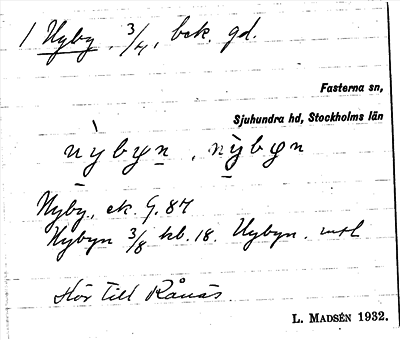 1 Nyby, 3/4, bek. gd.
Fasterna sn,
Sjuhundra hd, Stockholms län
nỳbyn, nỳbyn
Nyby, ek. G. 87
Nybyn 3/8 kb. 18. Nybyn. mtl
Hör till Rånäs.
L. MADSÉN 1932.